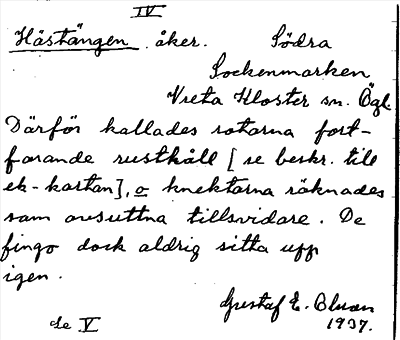 IV
Hästängen åker. Södra
Sockenmarken
Vreta Kloster sn. Ögl.
Därför kallades rotarna fort-
farande rusthåll [se beskr. till
ek-kartan], o knektarna räknades
som avsuttna tillsvidare. De
fingo dock aldrig sitta upp
igen.
Gustaf E. Bluan
1937.
se V